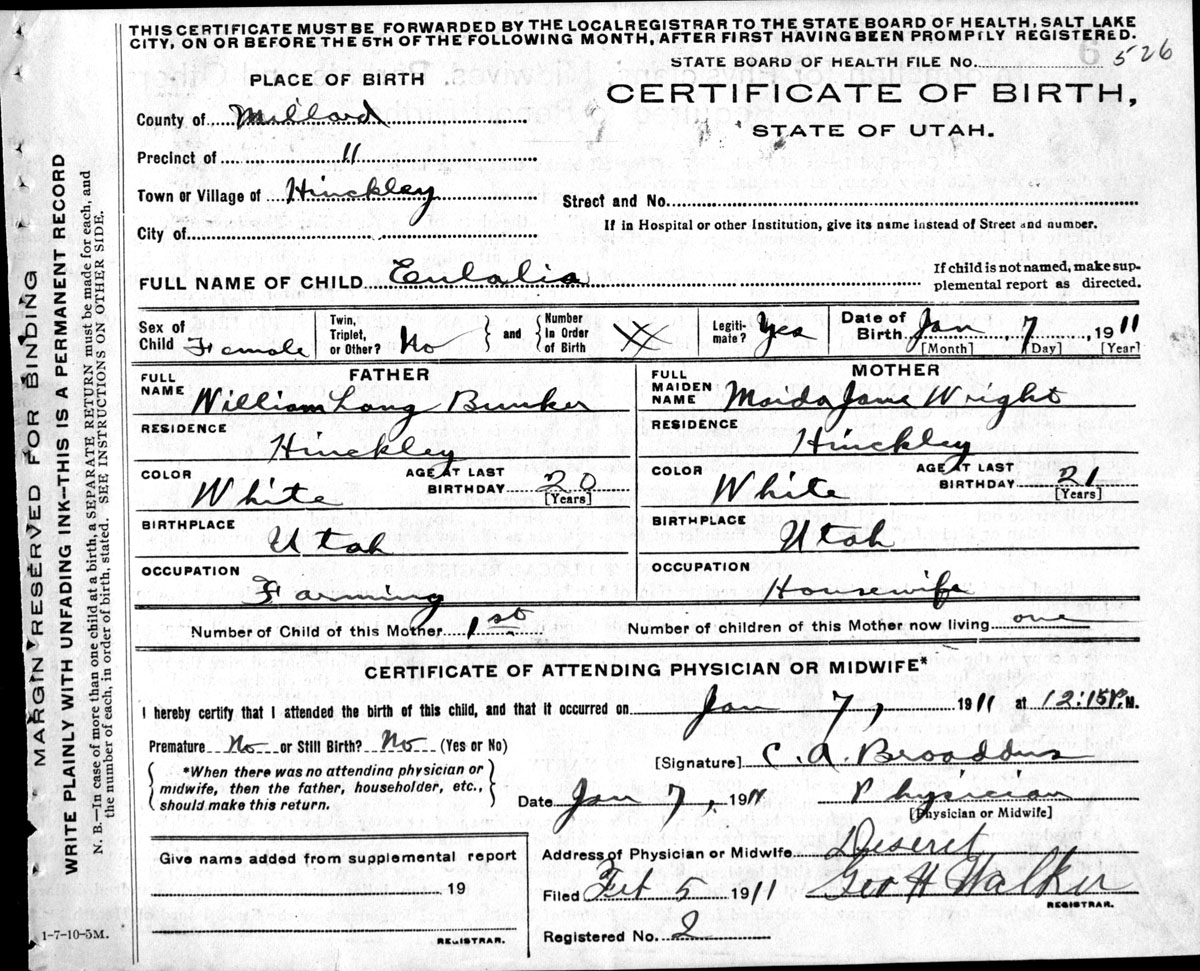 THIS CERTIFICATE MUST BE FORWARDED BY THE LOCAL REGISTRAR TO THE STATE BOARD OF HEALTH, SALT LAKE
CITY, ON OR BEFORE THE 5TH OF THE FOLLOWING MONTH, AFTER FIRST HAVING BEEN PROMPILY REGISTERED.
STATE BOARD OF HEALTH FILE No. 526
PLACE OF BIRTH
CERTIFICATE OF BIRTH,
STATE OF UTAH.
County of Millard
Precinct of "
Town or Village of Hinckley
Street and No.
City of
If in Hospital or other Institution, give its name instead of Street and number.
FULL NAME OF CHILD Eulalia
If child is not named, make sup-
plemental report as directed.
Sex of Child Female
Twin, Triplet, or Other? No } and { Number In Order of Birth
Legiti-mate? Yes
Date of Birth Jan 7, 1911
[Month] [Day] [Year]
FATHER
FULL NAME William Lang Bunker
RESIDENCE Hinckley
COLOR White AGE AT LAST BIRTHDAY 20 [Years]
BIRTHPLACE Utah
OCCUPATION Farming
MOTHER
FULL MAIDEN NAME Maida Jane Wright
RESIDENCE Hinckley
COLOR White AGE AT LAST BIRTHDAY 21 [Years]
BIRTHPLACE Utah
OCCUPATION Housewife
Number of Child of this Mother 1st Number of children of this Mother now living one
CERTIFICATE OF ATTENDING PHYSICIAN OR MIDWIFE*
I hereby certify that I attended the birth of this child, and that it occurred on Jan 7, 1911 at 12:15 P. M.
Premature No or Still Birth? No (Yes or No)
*When there was no attending physician or
midwife, then the father, householder, etc.,
should make this return.
[Signature] C. A. Broaddus
Date Jan 7, 1911 Physician
[Physician or Midwife]
Address of Physician or Midwife Deseret
Filed Feb 5 1911 Geo H Walker
REGISTRAR.
Registered No. 2
Give name added from supplemental report
19
REGISTRAR.
1-7-10-5M.
MARGIN RESERVED FOR BINDING
WRITE PLAINLY WITH UNFADING INK—THIS IS A PERMANENT RECORD
N. B.—In case of more than one child at a birth, a SEPARATE RETURN must be made for each, and
the number of each, in order of birth, stated. SEE INSTRUCTIONS ON OTHER SIDE.